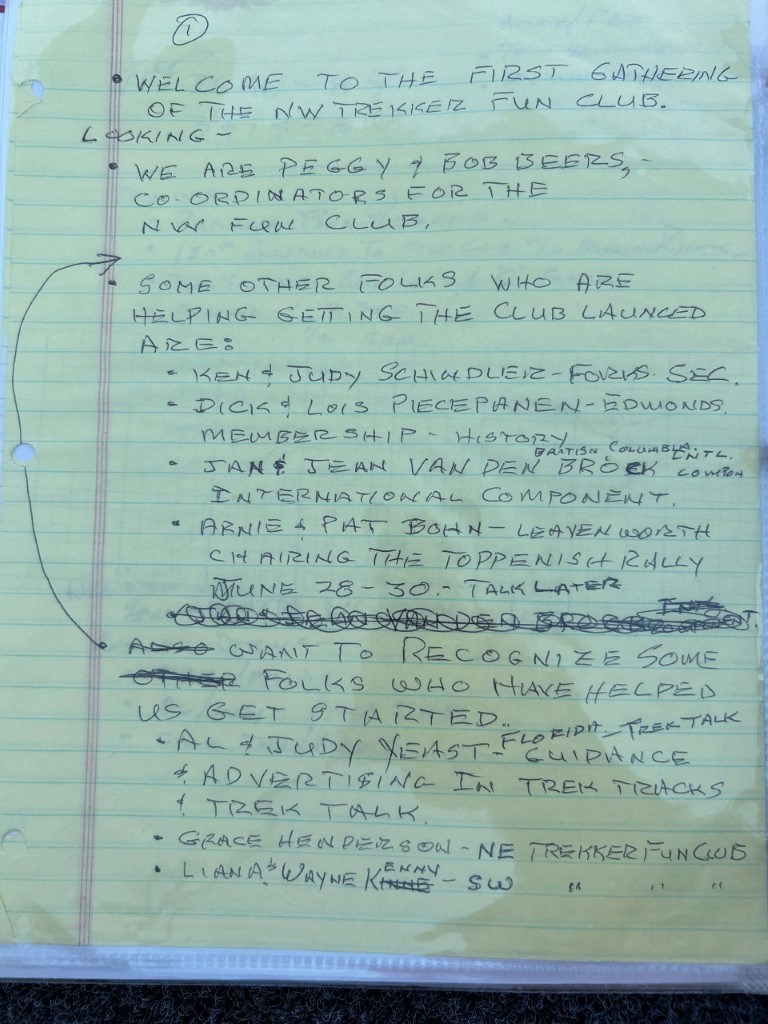 1
• WELCOME TO THE FIRST GATHERING
OF THE NW TREKKER FUN CLUB.
LOOKING -
• WE ARE PEGGY & BOB BEERS, -
CO-ORDINATORS FOR THE
NW FUN CLUB.
• SOME OTHER FOLKS WHO ARE
HELPING GETTING THE CLUB LAUNCED
ARE:
• KEN & JUDY SCHINDLER - FORKS. SEC.
• DICK & LOIS PIECEPANEN - EDMONDS.
MEMBERSHIP - HISTORY
BRITISH COLUMBIA. INTL.
• JAN & JEAN VAN DEN BROEK COMPON
INTERNATIONAL COMPONENT.
• ARNIE & PAT BOHN - LEAVENWORTH
CHAIRING THE TOPPENISH RALLY
JUNE 28-30. - TALK LATER
• JAN & JEAN VAN DEN BROEK
ALSO WANT TO RECOGNIZE SOME
OTHER FOLKS WHO HAVE HELPED
US GET STARTED..
FLORIDA - TREK TALK
• AL & JUDY YEAST - GUIDANCE
& ADVERTISING IN TREK TRACKS
& TREK TALK.
• GRACE HENDERSON - NE TREKKER FUN CLUB
• LIANA & WAYNE KENNY - SW " " "